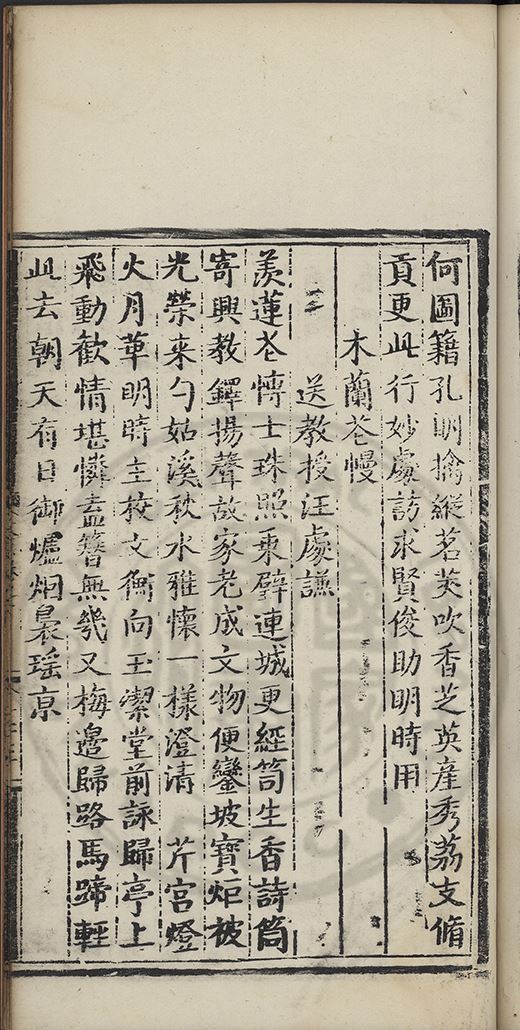 何圖籍孔明擒縱茗英吹香芝英産秀荔支脩
貢更此行妙處訪求賢俊助明時用
木蘭花慢
送教授汪處謙
羡蓮花博士珠照乘璧連城更經笥生香詩筒
寄興教鐸揚聲故家老成文物便鑾坡寶炬被
光榮来勺姑溪秋水雅懷一樣澄清 芹宫燈
火月華明時主校文衡向玉潔堂前詠歸亭上
飛動歡情堪憐盍簪無幾又梅邊歸路馬蹄輕
此去朝天有日御爐烟裊瑶京